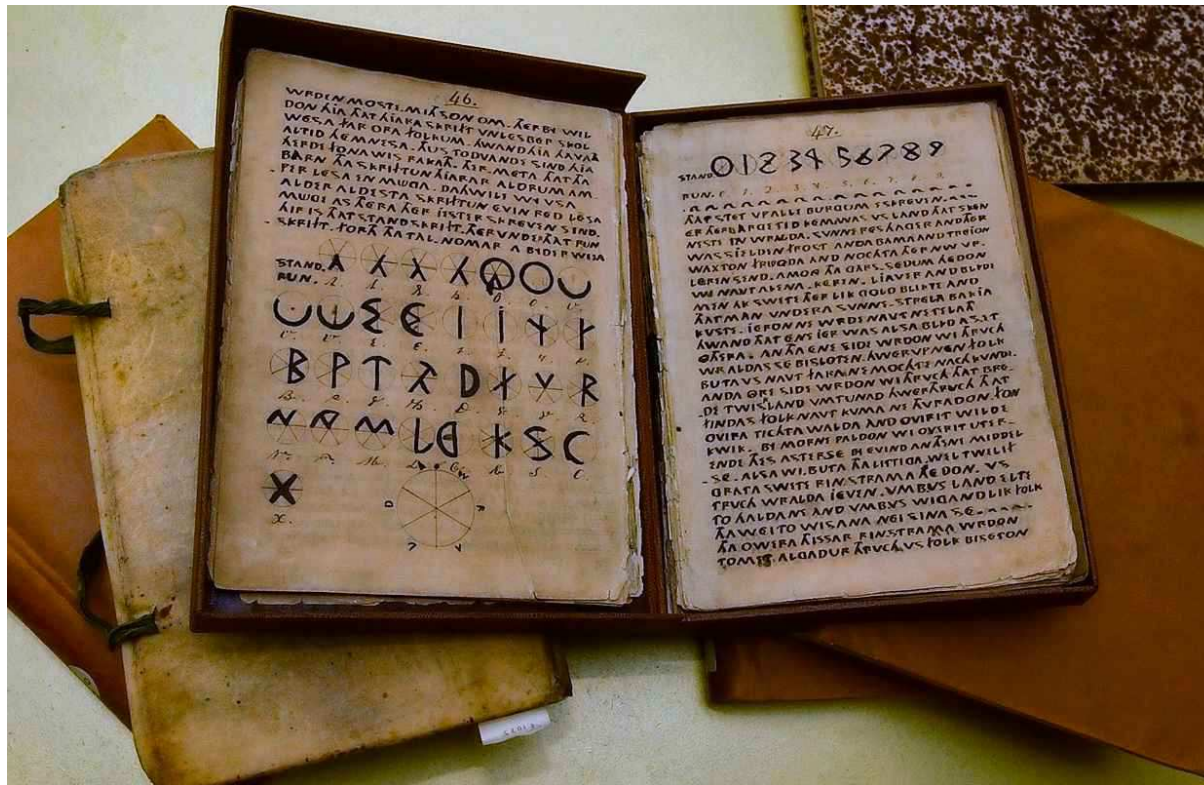 46.
WRDEN MOSTE. MITHSON OM. THERBI WIL
DON HIA THAT HIARA SKRIFT VNLESBER SKOL
WESA FAR ORA FOLKUM. HWAND HIA HAVATH
ALTID HEMNESA. THUS TODVANDE SIND HIA
HERDE FONA WIS RAKATH. THER META THAT THA
BARN THA SKRIFTUN HIARAR ALDRUM AM-
-PER LESA EN MUGA. DAHWILE WI VSA
ALDER ALDESTA SKRIFTUN EVIN RED LESA
MUGA AS THERA THER IESTER SKREVEN SIND.
HIR IS THAT STANDSKRIFT. THERUNDER THAT RUN
-SKRIFT. FORTH THA TAL. NOMAR A BIDER WISA
STAND.
RUN.
47.
STAND. 0 1 2 3 4 5 6 7 8 9
RUN. 0. 1. 2. 3. 4. 5. 6. 7. 8. 9.
THAT STET VPALLI BURGUM ESKREVEN.
ER THERE ARGE TID KEM WAS VS LAND THAT SKEN
NISTE IN WRALDA. SUNNE RES HAGER AND THER
WAS SIELDEN FROST ANDA BAMA AND TREION
WAXTON FRUGDA AND NOCHTA THER NW VR.
LEREN SEND. AMONG THA GARS. SEDUM HEDON
WI NAVT ALENA. KEREN. LIAVER AND BLIDE
MEN AK SWETE THER LIK GOLD BLIKTE AND
THAT MAN VNDERA SUNNE. STRELA BAKIA
KUSTE. IERON NE WRDE NAVT NE TELATH
HWAND THAT ENE IER WAS ALSA BLID AS IT
OTHERA. AN THA ENE SIDE WRDON WI THRUCH
WRALDAS SE BISLOTEN. HWERUP NEN FOLK
BUTA VS NAVT FARA NE MOCHTE NACH KUNDE.
ANDA ORE SIDE WRDON WI THRUCH THAT BRE-
-DE TWISKLAND VMTUNAD HWERTHRUCH THAT
FINDAS FOLK NAVT KUMA NE THURADON. FON
OVIRA TICHTA WALDA AND OVIRIT WILDE
KWIK. BI MORNE PALDON WI OVERIT UTER-
ENDE THES ASTERSE BI EVIND AN THENE MIDDEL
-SE. ALSA WI. BUTA THA LITTIGA. WEL TWILIF
GRATA SWETE RINSTRAMA HEDON. VS
THRUCH WRALDA IEVEN. VMBUS LAND ELTE
TO HALDANE AND VMBUS WIGANDLIK FOLK
THA WEI TO WISANA NEI SINA SE.
THA OWERA THISSAR RINSTRAMA WRDON
TOMET ALGADUR THRUCH VS FOLK BISETON